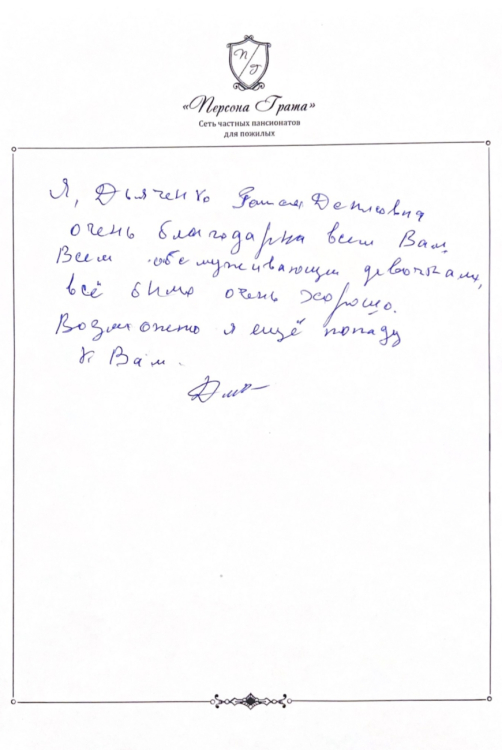 П
Г
«Персона Грата»
Сеть частных пансионатов
для пожилых
Я, Дьяченко
очень благодарна всем Вам,
Всем обслуживающим девочкам,
всё было очень хорошо.
Возможно я ещё попаду
к Вам.